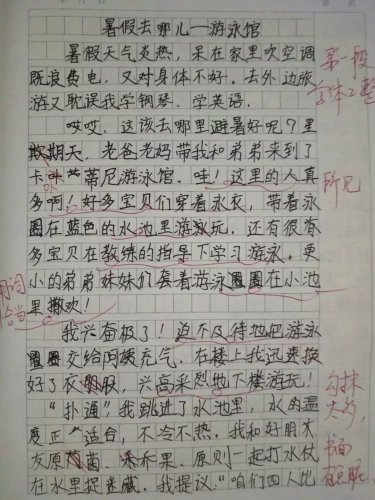 暑假去哪儿—游泳馆
暑假天气炎热，呆在家里吹空调
既浪费电，又对身体不好。去外边旅
游又耽误我学钢琴、学英语。
哎哎，这该去哪里避暑好呢？星
期天，老爸老妈带我和弟弟来到了
卡蒂尼游泳馆。哇！这里的人真
多啊！好多宝贝们穿着泳衣，带着泳
圈在蓝色的水池里游泳玩。还有很有
多宝贝在教练的指导下学习游泳，更
小的弟弟妹妹们套着游泳圈在小池
里撒欢！
我兴奋极了！迫不及待地把游泳
圈交给阿姨充气，在楼上我迅速换
好了衣服，兴高采烈地下楼游玩！
“扑通”我跳进了水池里，水的温
度正适合，不冷不热。我和好朋友
友原菌、乔果、原则一起打水仗
在水里捉迷藏。我提议：“咱们四人比
第一段
字体工整
所见
用词
恰当
勾抹
太多
书面